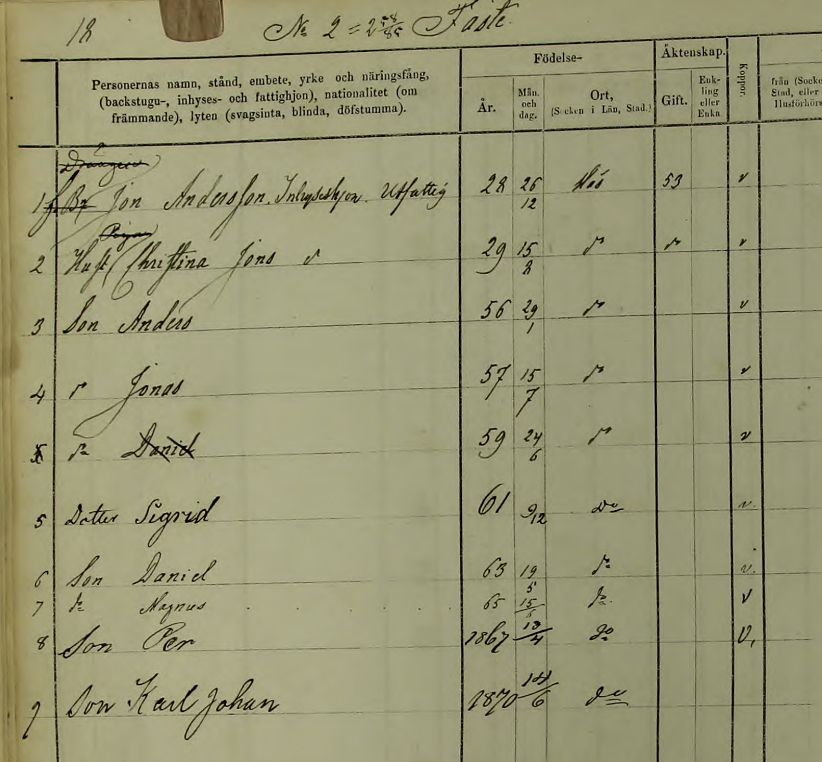 18 № 2 = 2 58/85 Fäste.
Födelse- Äktenskap.
Personernas namn, stånd, embete, yrke och näringsfång,
(backstugu-, inhyses- och fattighjon), nationalitet (om
främmande), lyten (svagsinta, blinda, döfstumma).
År. Mån. och dag. Ort, (Socken i Län, Stad.) Gift. Enkling eller Enka Koppor.
från (Socke
Stad, eller
Husförhörs
Drängen
1 Br Jon Andersson. Inhyseshjon. Utfattig 28 26/12 53 v
Pigan
2 Hust Christina Jons dr 29 15/8 dr dr v
3 Son Anders 56 29/1 dr v
4 dr Jonas 57 15/7 dr v
5 do Daniel 59 24/6 dr v
5 Dotter Sigrid 61 9/12 do v
6 Son Daniel 63 19/5 do v.
7 do Magnus 65 15/6 do. v
8 Son Per 1867 13/4 do v,
9 Son Karl Johan 1870 14/6 do